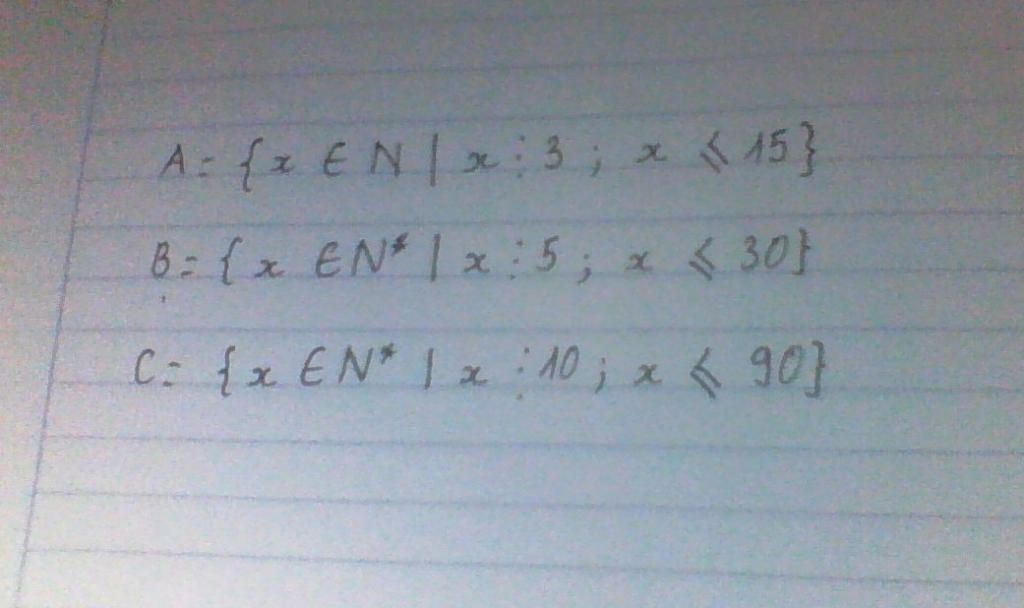 A = {x ∈ N | x ⋮ 3 ; x ⩽ 15}
B = {x ∈ N* | x ⋮ 5 ; x ⩽ 30}
C = {x ∈ N* | x ⋮ 10 ; x ⩽ 90}